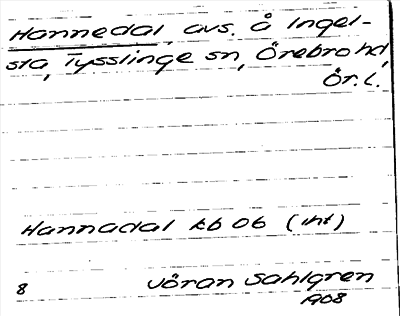 Hannedal, avs. å Ingel-
sta, Tysslinge sn, Örebro hd,
Ör. l.
Hannadal kb 06 (iht)
8 Jöran Sahlgren
1908